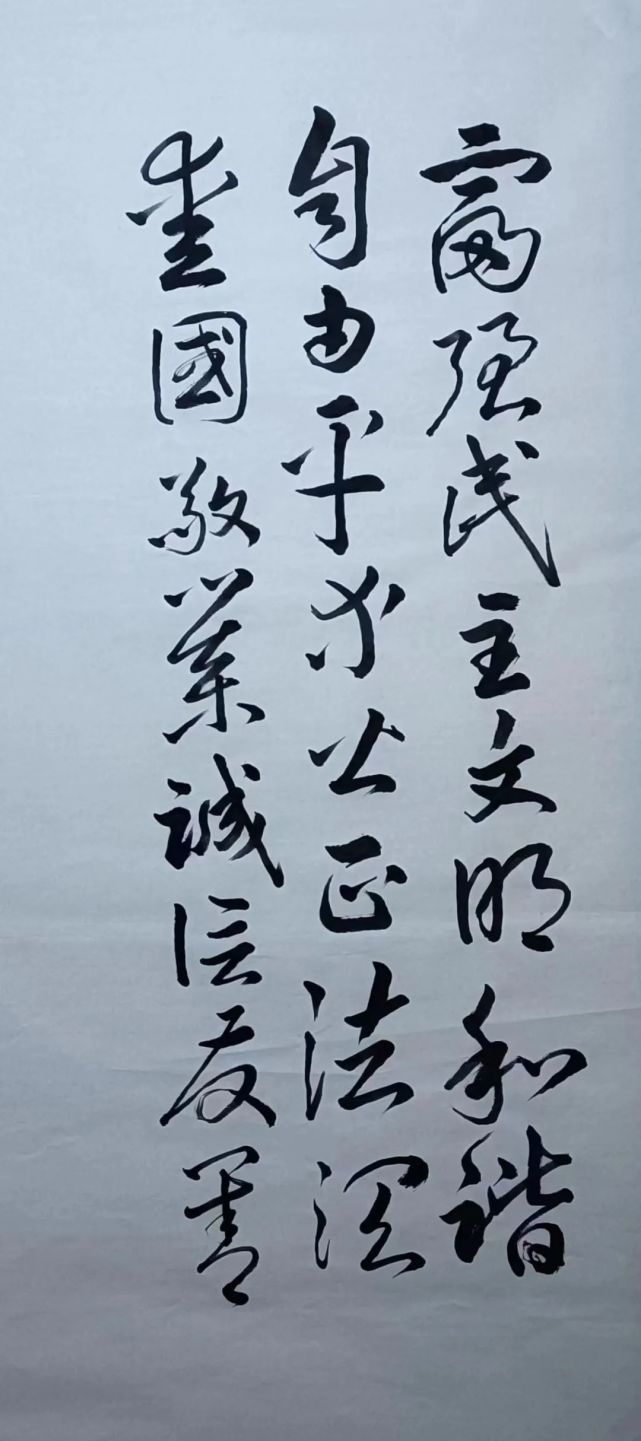 富强民主文明和谐
自由平等公正法治
爱國敬業誠信友善